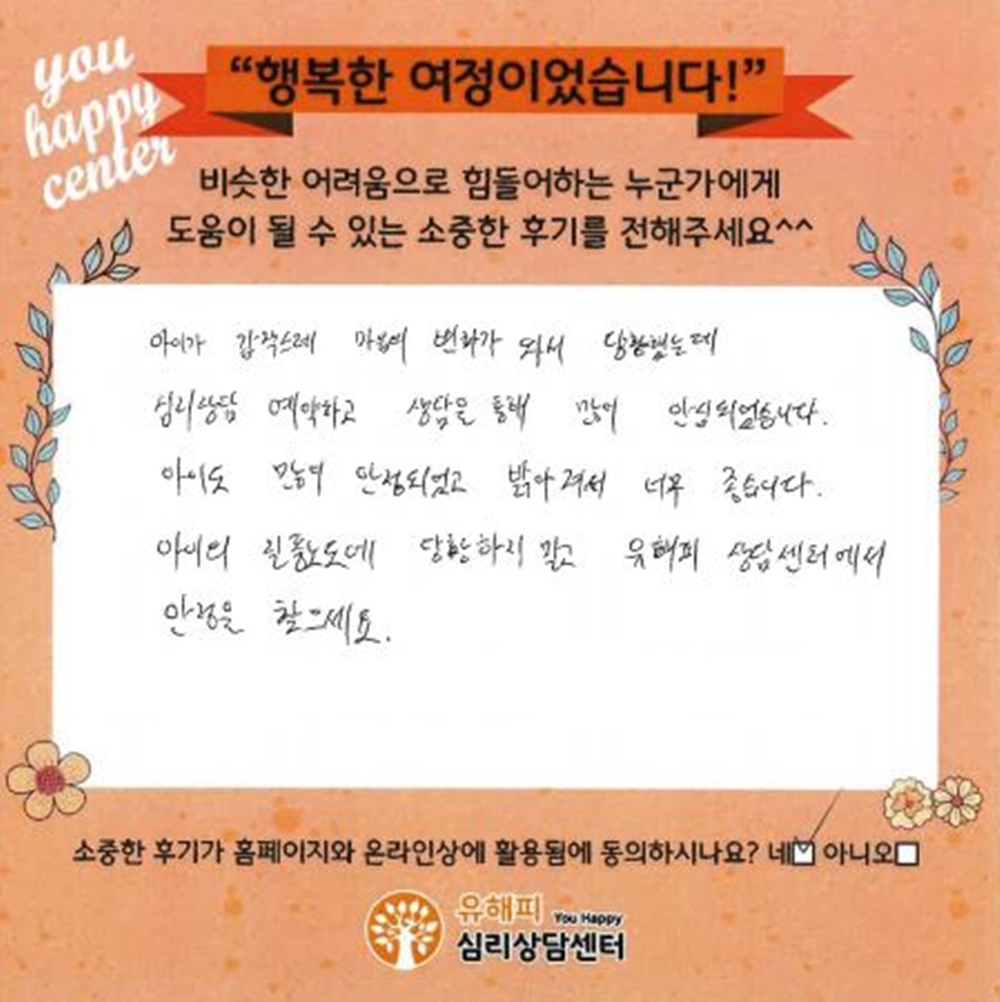 you
happy
center
“행복한 여정이었습니다!”
비슷한 어려움으로 힘들어하는 누군가에게
도움이 될 수 있는 소중한 후기를 전해주세요^^
아이가 갑작스레 마음에 변화가 와서 당황했는데
심리상담 예약하고 상담을 통해 많이 안심되었습니다.
아이도 많이 안정되었고 밝아져서 너무 좋습니다.
아이의 질풍노도에 당황하지 말고 유해피 상담센터에서
안정을 찾으세요.
소중한 후기가 홈페이지와 온라인상에 활용됨에 동의하시나요? 네☑ 아니오☐
유해피 You Happy
심리상담센터